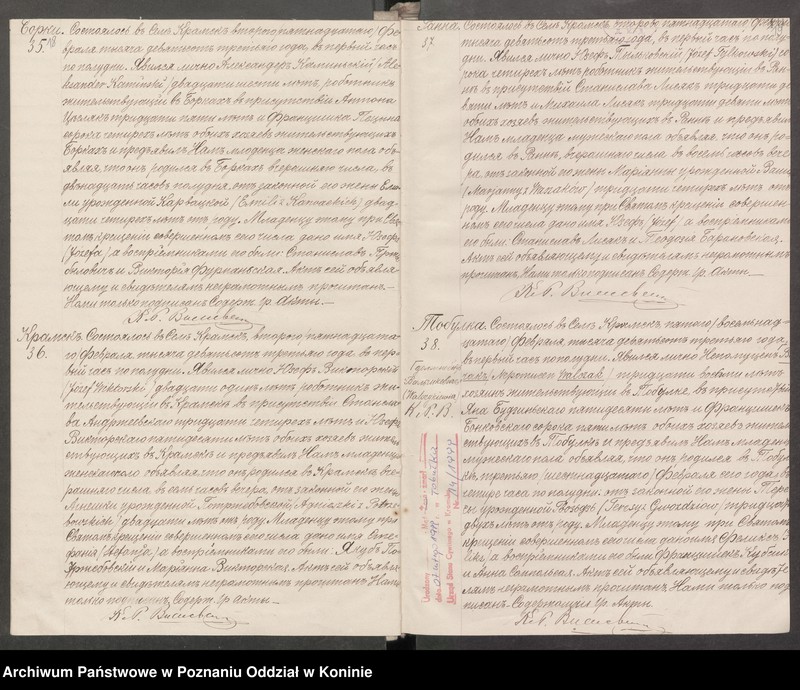 Борки.
35.
Состоялось въ Селѣ Крамскъ второго/пятнадцатаго/Фе-
враля тысяча девятьсотъ третьяго года, въ первый часъ
по полудни. Явился лично Александеръ Каминьскій /Ale-
ksander Kamiński/ двадцати шести лѣтъ, работникъ
жительствующій въ Боркахъ въ присутствіи Антона
тридцати пяти лѣтъ и Францишка
сорока четырехъ лѣтъ обоихъ хозяевъ жительствующихъ
Боркахъ и предъявилъ Намъ младенца женскаго пола объ-
являя, что онъ родился въ Боркахъ вчерашняго числа, въ
двѣнадцать часовъ полудня, отъ законной его жены Еми-
ліи урожденной Карвацкой /Emilii Karwackich/ двад-
цати четырехъ лѣтъ отъ роду. Младенцу этому при Свя-
томъ крещеніи совершенномъ его числа дано имя Юзефа
/Józefa/, а воспріемниками его были: Станиславъ
и Викторія Фурманьская. Актъ сей объявля-
ющему и свидѣтелямъ неграмотнымъ прочитанъ
Нами только подписанъ Содерж. Гр. Акты.—
Кс. Р.
Крамскъ
36.
Состоялось въ Селѣ Крамскъ, второго/пятнадцата-
го/ Февраля тысяча девятьсотъ третьяго года, въ пер-
вый часъ по полудни. Явился лично Юзефъ Викторскій
/Józef Wiktorski/ двадцати одинъ лѣтъ, работникъ жи-
тельствующій въ Крамскѣ въ присутствіи Станисла-
ва Андржеевскаго тридцати четырехъ лѣтъ и Юзефа
Викторскаго пятидесяти лѣтъ обоихъ хозяевъ житель-
ствующихъ въ Крамскѣ и предъявилъ Намъ младенца
женскаго пола объявляя, что онъ родился въ Крамскѣ вче-
рашняго числа въ семь часовъ вечера, отъ законной его жены
Агнешки урожденной
двадцати лѣтъ отъ роду. Младенцу этому при
Святомъ крещеніи совершенномъ его числа дано имя Сте-
фанія /Stefanja/ а воспріемниками его были: Якубъ
и Маріанна Викторская. Актъ сей объявля-
ющему и свидѣтелямъ неграмотнымъ прочитанъ Нами
только подписанъ Содерж. Гр. Акты.—
Кс. Р.
37.
Состоялось въ Селѣ Крамскъ, второго/пятнадцатаго/Февраля
тысяча девятьсотъ третьяго года, въ первый часъ по полу-
дни. Явился лично Юзефъ Тылковскій /Józef Tylkowski/ со-
рока четырехъ лѣтъ работникъ жительствующій въ
въ присутствіи Станислава Лисякъ тридцати де-
вяти лѣтъ и Михаила Лисякъ тридцати девяти лѣтъ
обоихъ хозяевъ жительствующихъ въ и предъявилъ
Намъ младенца мужескаго пола объявляя, что онъ ро-
дился въ вчерашняго числа въ восемь часовъ вече-
ра, отъ законной его жены Маріянны урожденной
тридцати четырехъ лѣтъ отъ
роду. Младенцу этому при Святомъ крещеніи совершен-
номъ его числа дано имя Юзефъ /Józef/ а воспріемниками
его были: Станиславъ Лисякъ и Теодозія Барановская.
Актъ сей объявляющему и свидѣтелямъ неграмотнымъ
прочитанъ Нами только подписанъ Содерж. Гр. Акты.—
Кс. Р.
Тобулка.
38.
К. Р. В.
Состоялось въ Селѣ Крамскъ пятаго/восемнад-
цатаго/ Февраля тысяча девятьсотъ третьяго года
въ первый часъ по полудни. Явился лично Непомуценъ
/Nepomucen Walczak/ тридцати восьми лѣтъ
хозяинъ жительствующій въ Тобулкѣ, въ присутствіи
Яна Будзинскаго пятидесяти лѣтъ и Францишка
Бонковскаго сорока пяти лѣтъ обоихъ хозяевъ житель-
ствующихъ въ Тобулкѣ и предъявилъ Намъ младенца
мужескаго пола объявляя, что онъ родился въ Тобул-
кѣ, третьяго/шестнадцатаго/ Февраля его года въ
четыре часа по полудни: отъ законной его жены Тере-
сы урожденной Гвоздзь /Teresy Gwoździow/ тридцати
двухъ лѣтъ отъ роду. Младенцу этому при Святомъ
крещеніи совершенномъ его числа дано имя Феликсъ
а воспріемниками его были Францишекъ
и Анна Сомпольская. Актъ сей объявляющему и свидѣте-
лямъ неграмотнымъ прочитанъ Нами только под-
писанъ. Содержащій Гр. Акты.
Кс. Р.
Archiwum Państwowe w Poznaniu Oddział w Koninie